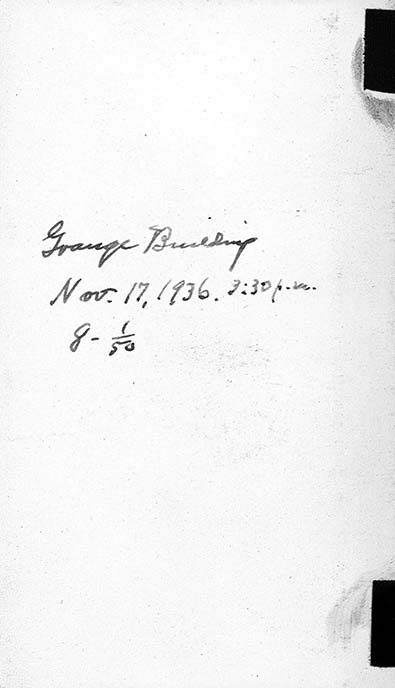 Grange Building
Nov. 17, 1936. 3:30 p.m.
8 - 1/50